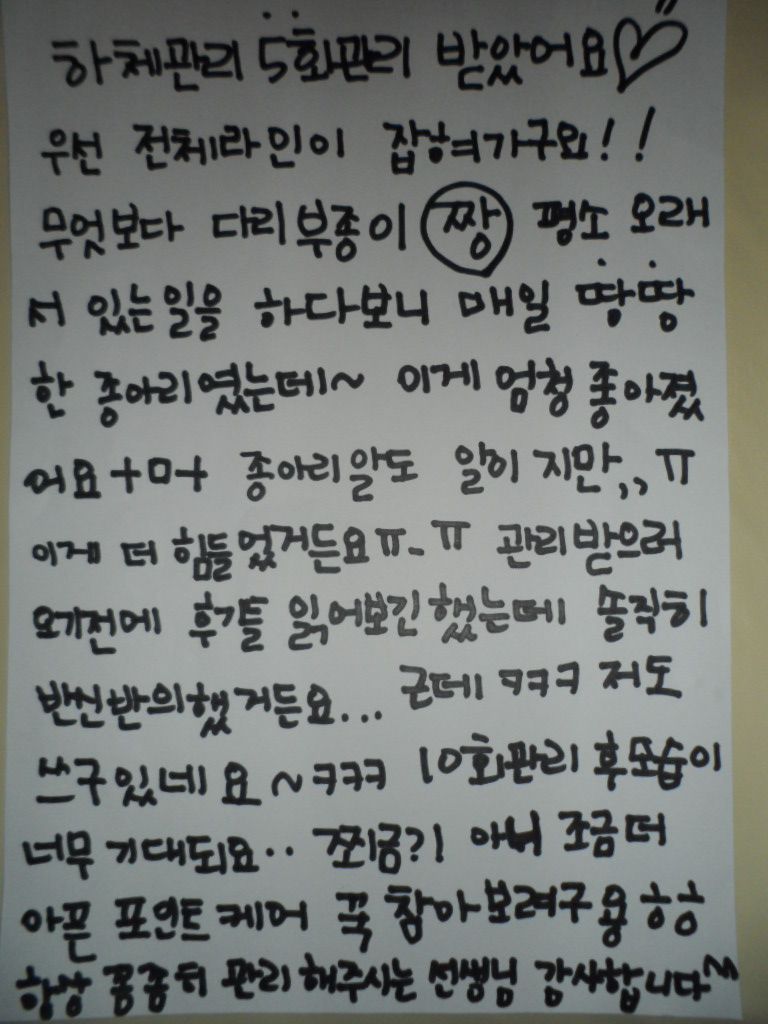 하체관리 5회관리 받았어요♡
우선 전체라인이 잡혀가구요!!
무엇보다 다리부종이 짱 평소 오래
서 있는일을 하다보니 매일 땅땅
한 종아리였는데~ 이게 엄청 좋아졌
어요+ㅁ+ 종아리알도 알이지만,,ㅠ
이게 더 힘들었거든요ㅠ_ㅠ 관리받으러
오기전에 후기들 읽어보긴했는데 솔직히
반신반의했거든요... 근데 ㅋㅋㅋ 저도
쓰구있네요~ㅋㅋㅋ 10회관리 후모습이
너무 기대되요.. 쪼금?! 아니 조금더
아픈 포인트케어 꾹 참아보려구용ㅎㅎ
항상 꼼꼼히 관리해주시는 선생님 감사합니다^^